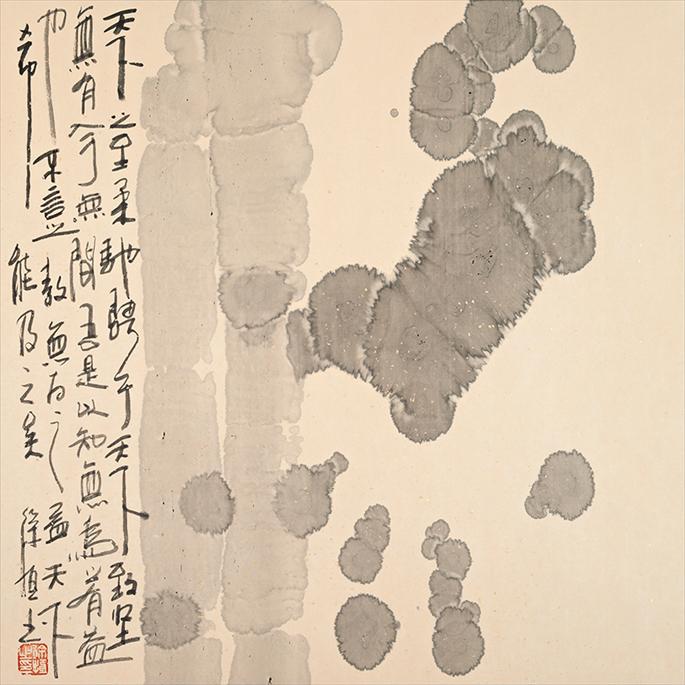 天下之至柔馳騁于天下致堅
無有入于無間吾是以知無為有益
也不言之教無為之益天下
希能及之矣 徐